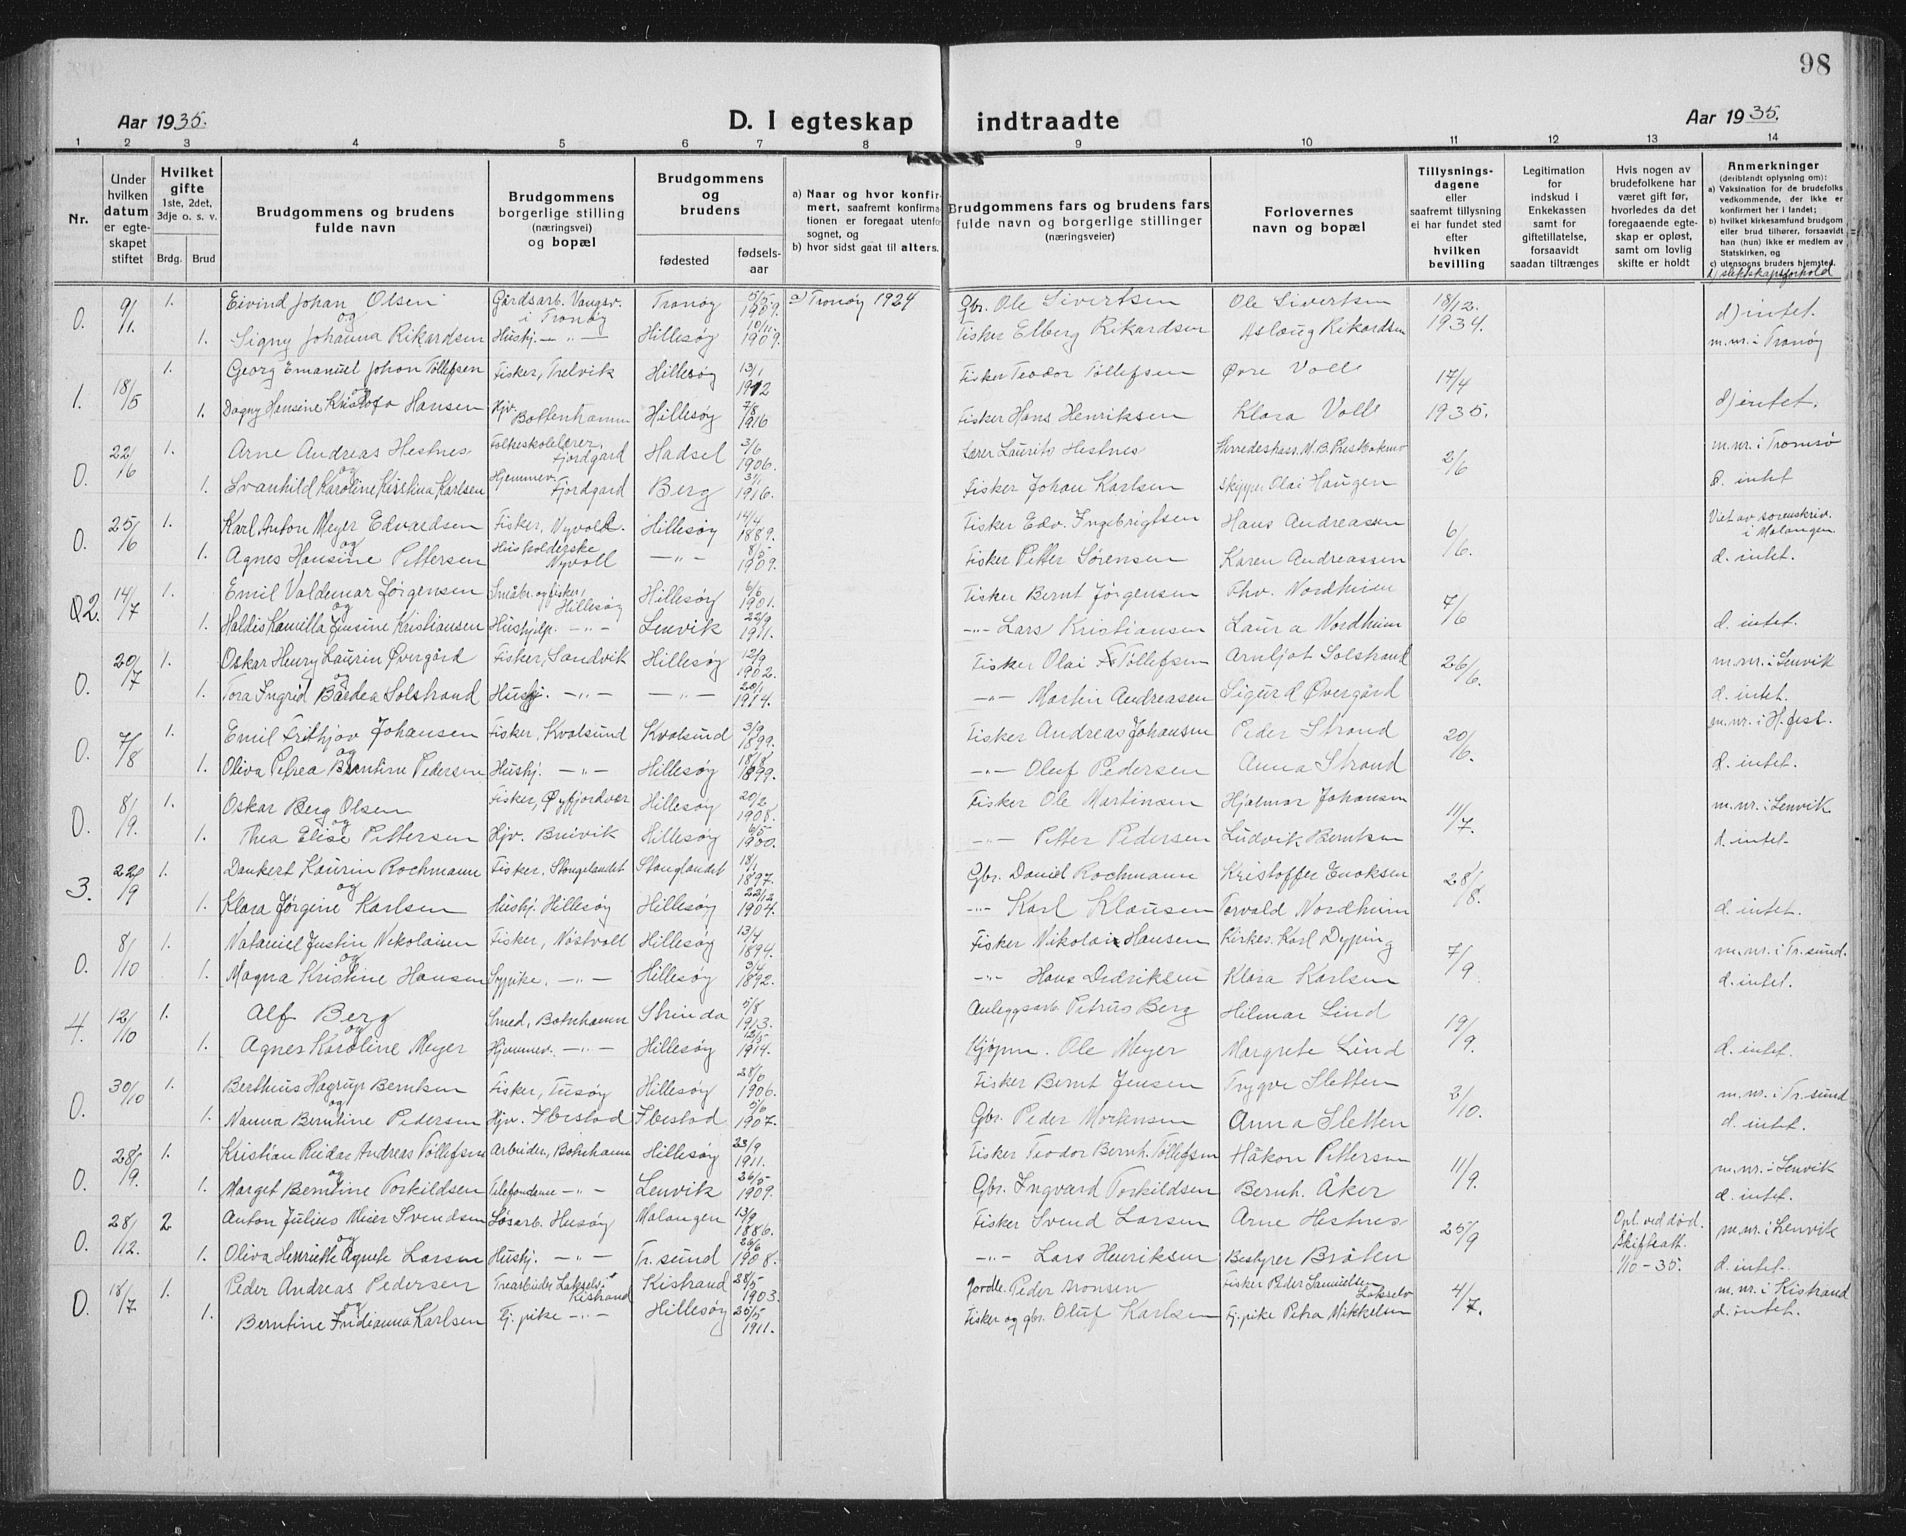 98
Aar 1935.
D. I egteskap indtraadte
Aar 1935.
1 2 3 4 5 6 7 8 9 10 11 12 13 14
Nr.
Under hvilken datum er egteskapet stiftet
Hvilket gifte 1ste, 2det, 3dje o. s. v.
Brdg. Brud
Brudgommens og brudens fulde navn
Brudgommens borgerlige stilling (næringsvei) og bopæl
Brudgommens og brudens
fødested
fødsels-aar
a) Naar og hvor konfirmert, saafremt konfirmationen er foregaat utenfor sognet, og
b) hvor sidst gaat til alters.
Brudgommens fars og brudens fars fulde navn og borgerlige stillinger (næringsveier)
Forlovernes navn og bopæl
Tillysnings-dagene eller saafremt tillysning ei har fundet sted efter hvilken bevilling
Legitimation for indskud i Enkekassen samt for giftetillatelse, forsaavidt saadan tiltrænges
Hvis nogen av brudefolkene har været gift før, hvorledes da det foregaaende egteskap er opløst, samt om lovlig skifte er holdt
Anmerkninger (deriblandt oplysning om):
a) Vaksination for de brudefolks vedkommende, der ikke er konfirmert her i landet;
b) hvilket kirkesamfund brudgom eller brud tilhører, forsaavidt han (hun) ikke er medlem av Statskirken, og
c) utensogns bruders hjemsted.
d) slektskapsforhold
0. 9/11. 1. Eivind Johan Olsen Gårdsarb. Vangsv. i Tranøy Tranøy 5/5 1909. a) Tranøy 1924 Gbr. Ole Sivertsen Ole Sivertsen 18/12. 1934. d) intet.
og
1. Signy Johanna Rikardsen Hushj. — " — Hillesøy 10/11 1909. Fisker Elberg Rikardsen Aslaug Rikardsen m.nr. i Tranøy
1. 18/5 1. Georg Emanuel Johan Tøllefsen Fisker, Trelvik Hillesøy 13/1 1912 Fisker Teodor Tøllefsen Øvre Voll 17/4 1935.
og
1. Dagny Hansine Kristofa Hansen Hjv. Bottenhamn Hillesøy 7/8 1916 Fisker Hans Henriksen Klara Voll d) intet.
0. 22/16 1. Arne Andreas Hestnes Folkeskolelærer, Fjordgard Hadsel 3/6 1906. Lærer Laurits Hestnes Herredskass. M. B. 2/6 m.nr. i Tromsø
og
1. Svanhild Karoline Kristina Karlsen Hjemmev. Fjordgard Berg 3/1 1916. Fisker Johan Karlsen Skipper Olai Haugen d. intet
0. 25/16 1. Karl Anton Meyer Edvardsen Fisker, Nyvoll. Hillesøy 14/4 1889. Fisker Edv. Ingebrigtsen Hans Andreassen 6/6. Viet av sorenskriv. i Malangen
og
1. Agnes Hansine Pettersen Husholderske Nyvoll — " — 8/5 1909. Fisker Petter Sørensen Karen Andreassen d. intet.
02. 14/7 1. Emil Valdemar Jørgensen Småbr. og fisker, Hillesøy Hillesøy 6/6 1901. Fisker Bernt Jørgensen Thv. Nordheim 7/6
og
1. Haldis Kamilla Jensine Kristiansen Hushjelp. — " — Lenvik 22/9 1911. — " — Lars Kristiansen Laura Nordheim d. intet.
0. 20/7 1. Oskar Henry Laurin Øvergård Fisker, Sandvik Hillesøy 12/9 1902. Fisker Olai Tøllefsen Arnljot Solstrand 26/6. m.nr. i Lenvik
og
1. Tora Ingrid Bardea Solstrand Hushj. — " — — " — 20/1 1914. — " — Martin Andreasen Sigurd Øvergård d. intet.
0. 7/8 1. Emil Fritjov Johansen Fisker, Kvalsund Kvalsund 3/9 1899. Fisker Andreas Johansen Peder Strand 20/6. m.nr. i H.fest.
og
1. Oliva Petrea Berntine Pedersen Hushj. — " — Hillesøy 18/8 1899. — " — Oluf Pedersen Anna Strand d. intet.
0. 8/9. 1. Oskar Berg Olsen Fisker, Øyfjordvær Hillesøy 20/2 1908. Fisker Ole Martinsen Hjalmar Johansen 11/7. m.nr. i Lenvik
og
1. Thea Elise Pettersen Hjv. Breivik Hillesøy 6/5 1900. — " — Petter Pedersen Ludvik Berntsen d. intet.
3. 22/9 1. Dankert Laurin Rochmann Fisker, Stongelandet Stonglandet 18/1 1897. Gbr. Daniel Rochmann Kristoffer Enoksen 28/8.
og
1. Klara Jørgine Karlsen Hushj. Hillesøy Hillesøy 22/12 1904. — " — Karl Klausen Torvald Nordheim d. intet.
0. 8/10 1. Nataniel Justin Nikolaisen Fisker, Nostvoll Hillesøy 13/4 1894. Fisker Nikolai Hansen Kirkes. Karl Dyping 7/9. m.nr. i Tr.sund.
og
1. Magna Kristine Hansen Sypike. — " — Hillesøy 3/4 1892. — " — Hans Dedriksen Klara Karlsen d. intet.
4. 12/10 1. Alf Berg Smed, Botnhamn Strinda 5/8 1913. Anleggsarb. Petrus Berg Hilmar Lind 19/9.
og
1. Agnes Karoline Meyer Hjemmev. — " — Hillesøy 12/5 1914. Kjøpm. Ole Meyer Margrete Lind d. intet.
0. 30/10 1. Berthus Hagrup Berntsen Fisker, Tusøy Hillesøy 28/0 1906. Fisker Bernt Jensen Trygve Sletten 2/10. m.nr. i Tr.sund
og
1. Nanna Berntine Pedersen Hjv. Ibestad Ibestad 5/0 1907. Gbr. Peder Mortensen Anna Sletten d. intet.
0. 28/9. 1. Kristian Reidar Andreas Tøllefsen Arbeider, Botnhamn Hillesøy 23/9 1911. Fisker Teodor Bernh. Tøllefsen Håkon Pettersen 11/9. m.nr. i Lenvik
og
1. Marget Berntine Torkildsen Telefondame — " — Lenvik 26/5 1909. Gbr. Ingvard Torkildsen Bernh. Åker d. intet.
0. 28/12. 2 Anton Julius Meier Svendsen Løsarb. Husøy Malangen 13/9 1886. Fisker Svend Larsen Arne Hestnes 25/9 Opl. ved død. Skifteatt. 1/10-35. m.nr. i Lenvik
og
1. Oliva Henriette Agnete Larsen Hushj. — " — Tr.sund 26/6 1908. — " — Lars Henriksen Bestyrer Bråten d. intet.
0. 18/7 1. Peder Andreas Pedersen Trearbeider Lakselv i Kistrand Kistrand 28/5 1903. Jordbr. Peder Aronsen Fisker Peder Samuelsen Lakselv 4/7. m.nr. i Kistrand
og
1. Berntine Indianna Karlsen Tj.pike — " — Hillesøy 25/5 1911. Fisker og gbr. Oluf Karlsen Tj.pike Petra Mikkelsen d. intet.